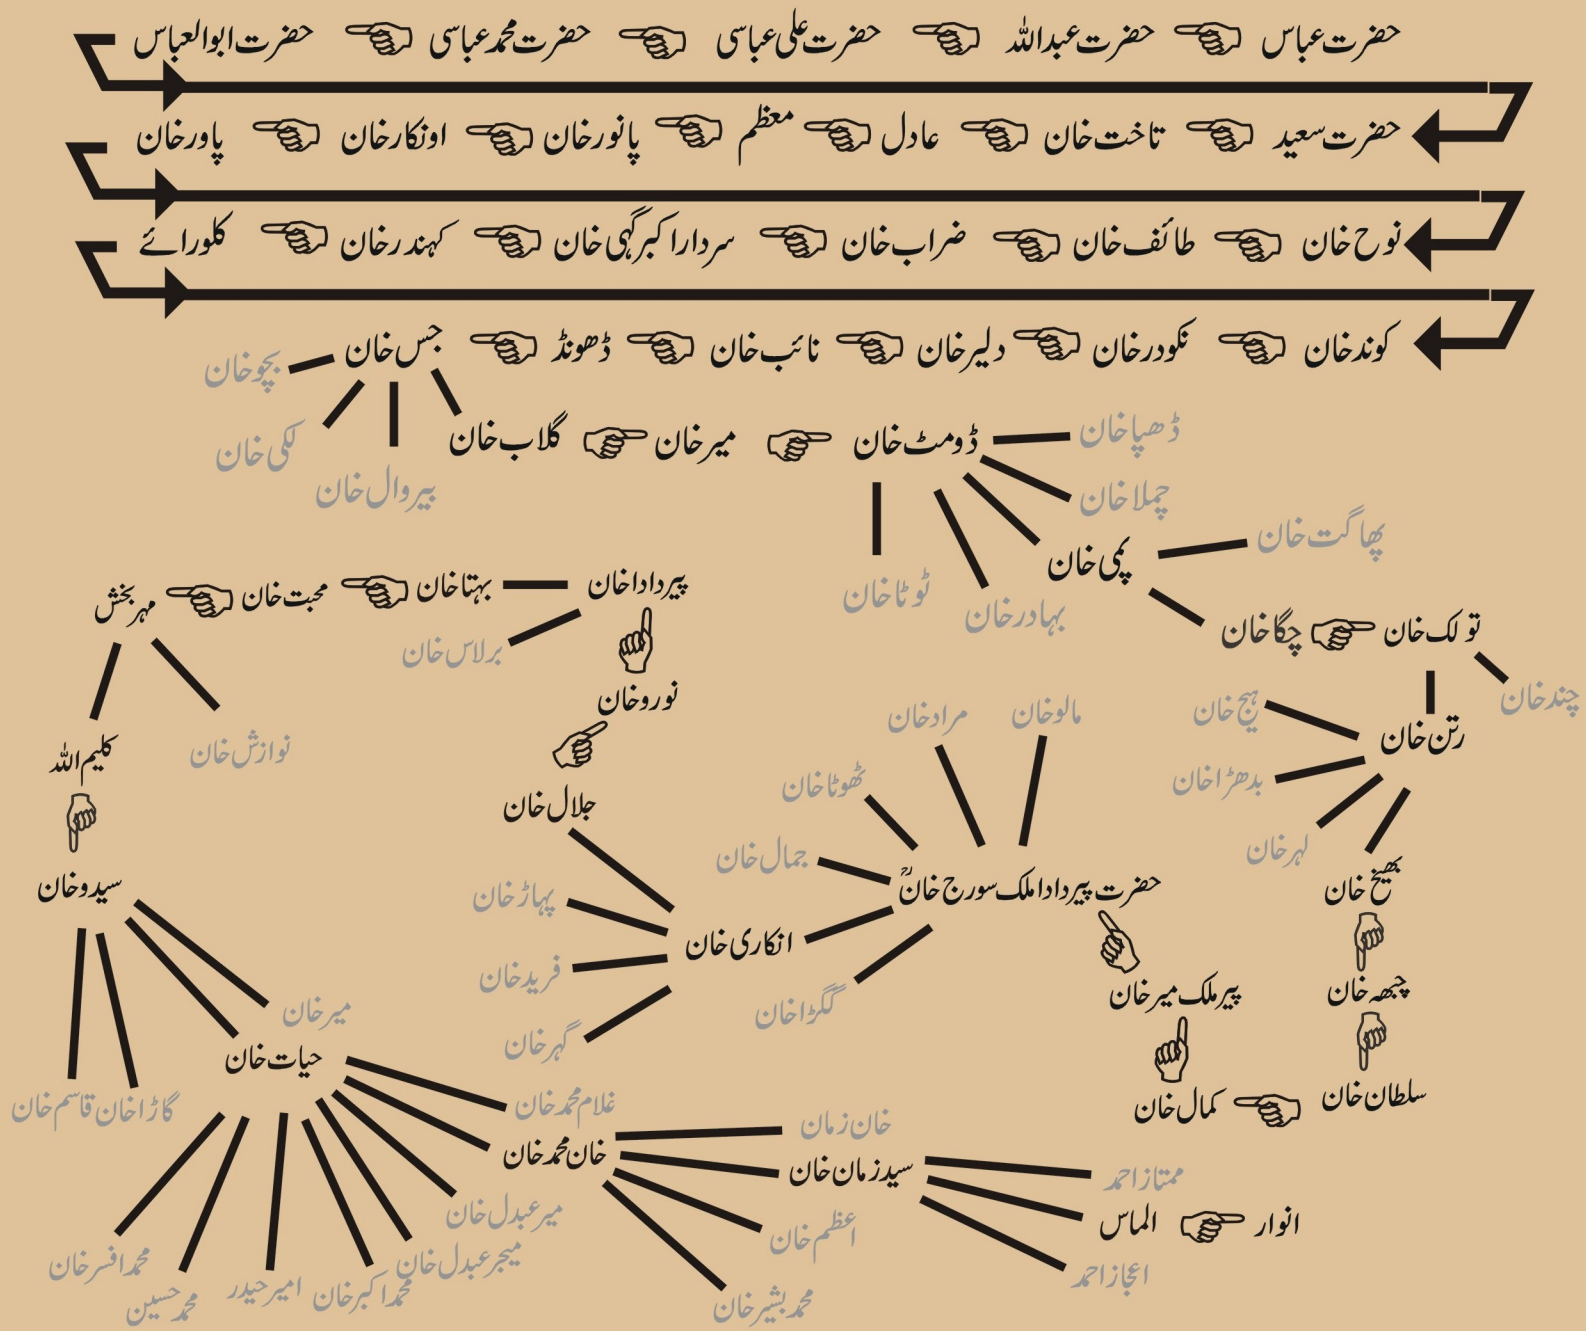 حضرت عباس حضرت عبداللہ حضرت علی عباسی حضرت محمد عباسی حضرت ابوالعباس
حضرت سعید تاخت خان عادل معظم پانور خان اونکار خان پاور خان
نوح خان طائف خان ضراب خان سردار اکبر گہی خان کہندر خان کلورائے
کوند خان نکودر خان دلیر خان نائب خان ڈھونڈ جس خان
بچو خان
لکی خان
بیروال خان
گلاب خان میر خان ڈومٹ خان ڈھپا خان
چملا خان
پمی خان پھاگت خان
ٹوٹا خان
بہادر خان
چگا خان تولک خان
چند خان
رتن خان
ہیج خان
بدھڑا خان
لہر خان
بھیخ خان
چبھہ خان
سلطان خان
کمال خان
پیر ملک میر خان
حضرت پیر دادا ملک سورج خانؒ
مالو خان
مراد خان
ٹھوٹا خان
جمال خان
گگڑا خان
انکاری خان
پہاڑ خان
فرید خان
گہر خان
جلال خان
نورو خان
پیر دادا خان
برلاس خان
بہتا خان محبت خان مہر بخش
نوازش خان
کلیم اللہ
سیدو خان
میر خان
حیات خان
گاڑا خان قاسم خان
غلام محمد خان
خان محمد خان
میر عبدل خان
میجر عبدل خان
محمد اکبر خان
امیر حیدر
محمد حسین
محمد افسر خان
خان زمان
سید زمان خان
اعظم خان
محمد بشیر خان
ممتاز احمد
الماس انوار
اعجاز احمد